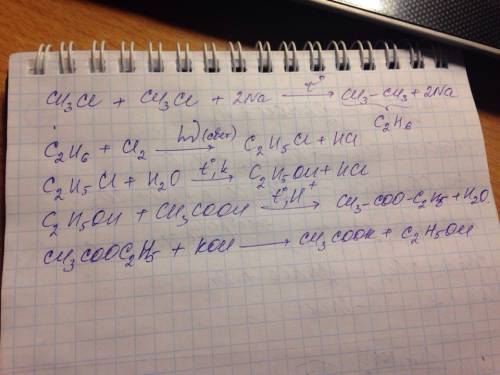 CH3Cl + CH3Cl + 2Na t° → CH3-CH3 + 2Na
C2H6
C2H6 + Cl2 hν (свет) → C2H5Cl + HCl
C2H5Cl + H2O t°, k → C2H5OH + HCl
C2H5OH + CH3COOH t°, H+ → CH3-COO-C2H5 + H2O
CH3COOC2H5 + KOH → CH3COOK + C2H5OH